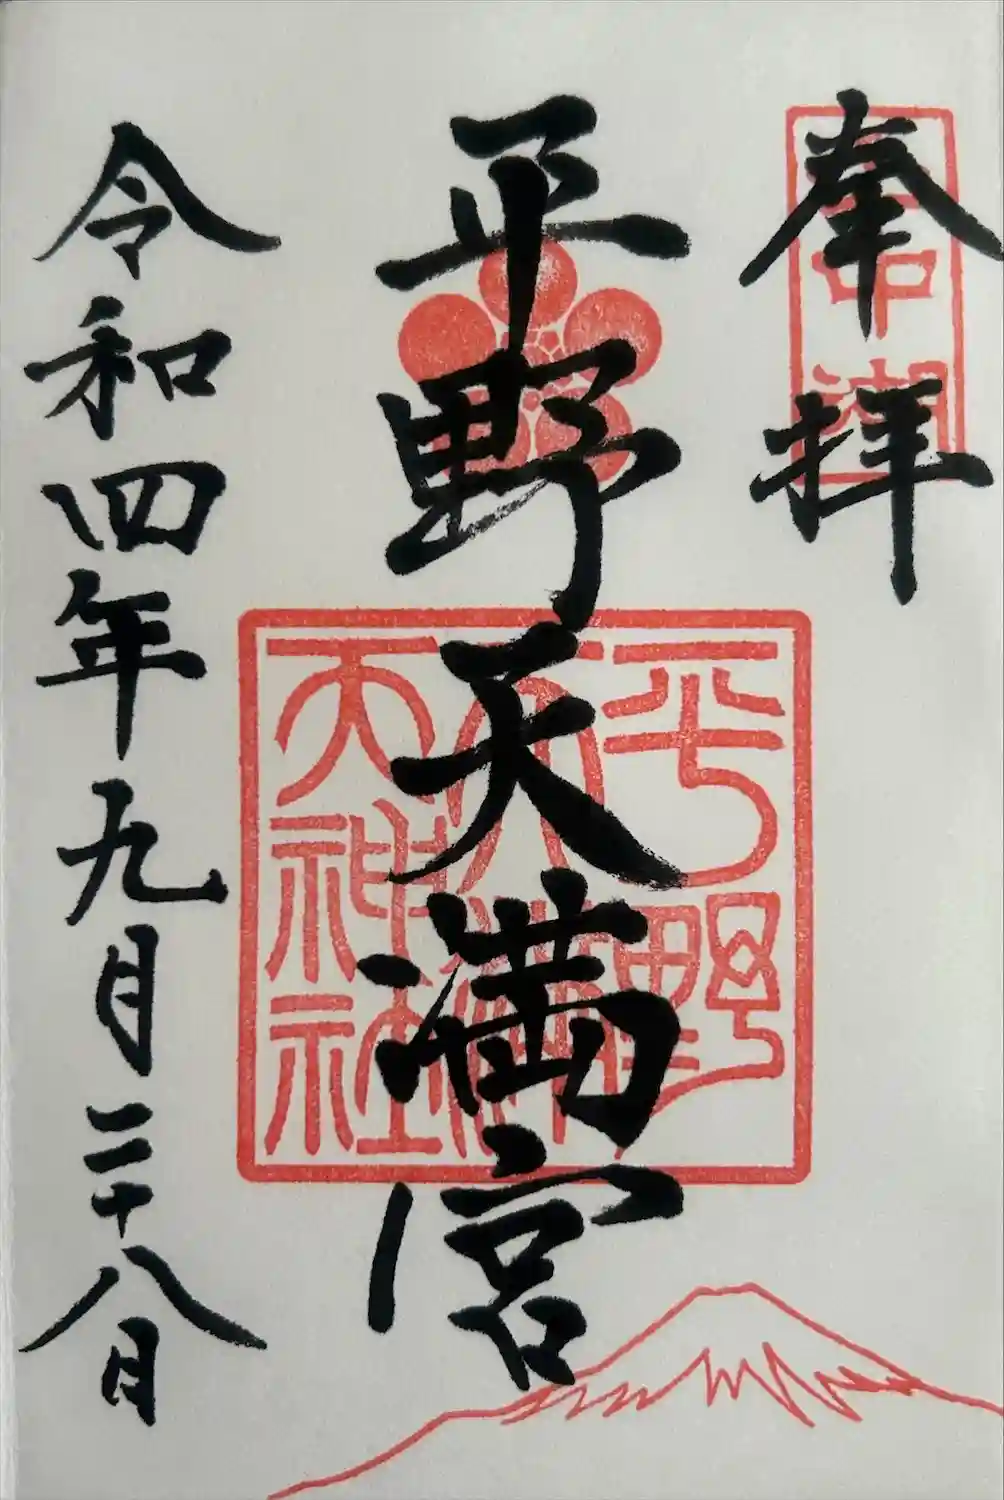 奉拝
平野天満宮
令和四年九月二十八日
平野
天神社